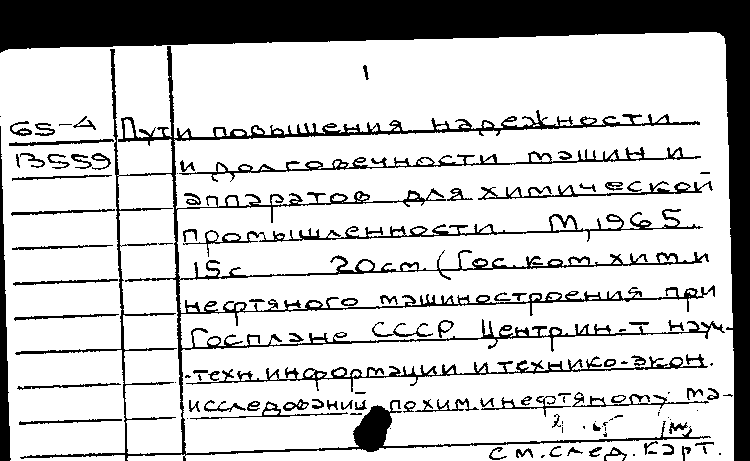 1
65-4 Пути повышения надежности
13559 и долговечности машин и
аппаратов для химической
промышленности. М, 1965.
15с 20см. (Гос. ком. хим. и
нефтяного машиностроения при
Госплане СССР. Центр. ин-т науч-
-техн. информации и технико-экон.
исследований по хим. и нефтяному ма-
см. след. карт.